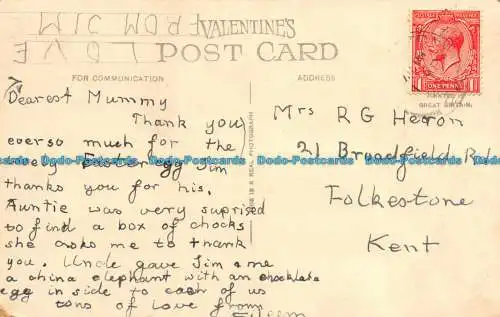 LOVE
FROM JIM
VALENTINE'S
POST CARD
FOR COMMUNICATION
ADDRESS
ONE PENNY
PRINTED IN
GREAT BRITAIN.
Dearest Mummy
Thank you
everso much for the
lovely Easter egg Jim
thanks you for his.
Auntie was very suprised
to find a box of chocks
she asks me to thank
you. Uncle gave Jim & me
a china elephant with an chocklate
egg in side to each of us
tons of love from
Eileen
THIS IS A REAL PHOTOGRAPH
Mrs R G Heron
21 Broadfield Rd.
Folkestone
Kent
Dodo-Postcards Dodo-Postcards Dodo-Postcards Dodo-Postcards